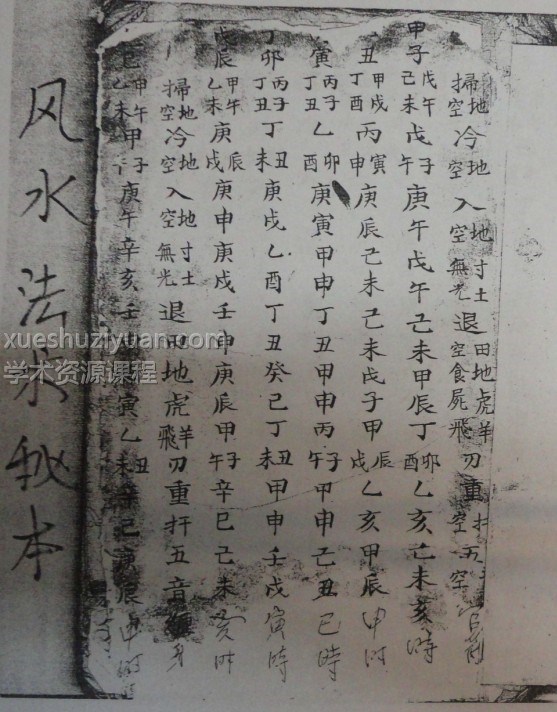 掃地空冷地空入地空寸土無光退田地空食虎屍羊飛刃重扦空五空
甲子戊午己未戊子午庚午戊午己未甲辰丁卯酉乙亥己未亥時
丑甲戌丁酉丙寅申庚辰己未己未戊子甲辰戌乙亥甲辰申时
寅丙子丁丑乙卯酉庚寅甲申丁丑甲申丙子午甲申己丑巳時
丁卯丙子丁丑丁丑未庚戌乙酉丁丑癸巳丁丑未甲申壬戌寅時
戊辰甲午乙未庚辰戌庚申庚戌壬申庚辰甲子午辛巳己未亥时
掃地空冷地空入地空寸土無光退田地虎羊飛刃重扦五音纏身
巳甲午乙未甲子庚午辛亥壬寅乙丑未辛巳庚辰申时
风水法秘本
xueshuziyuan.com
学术资源课程